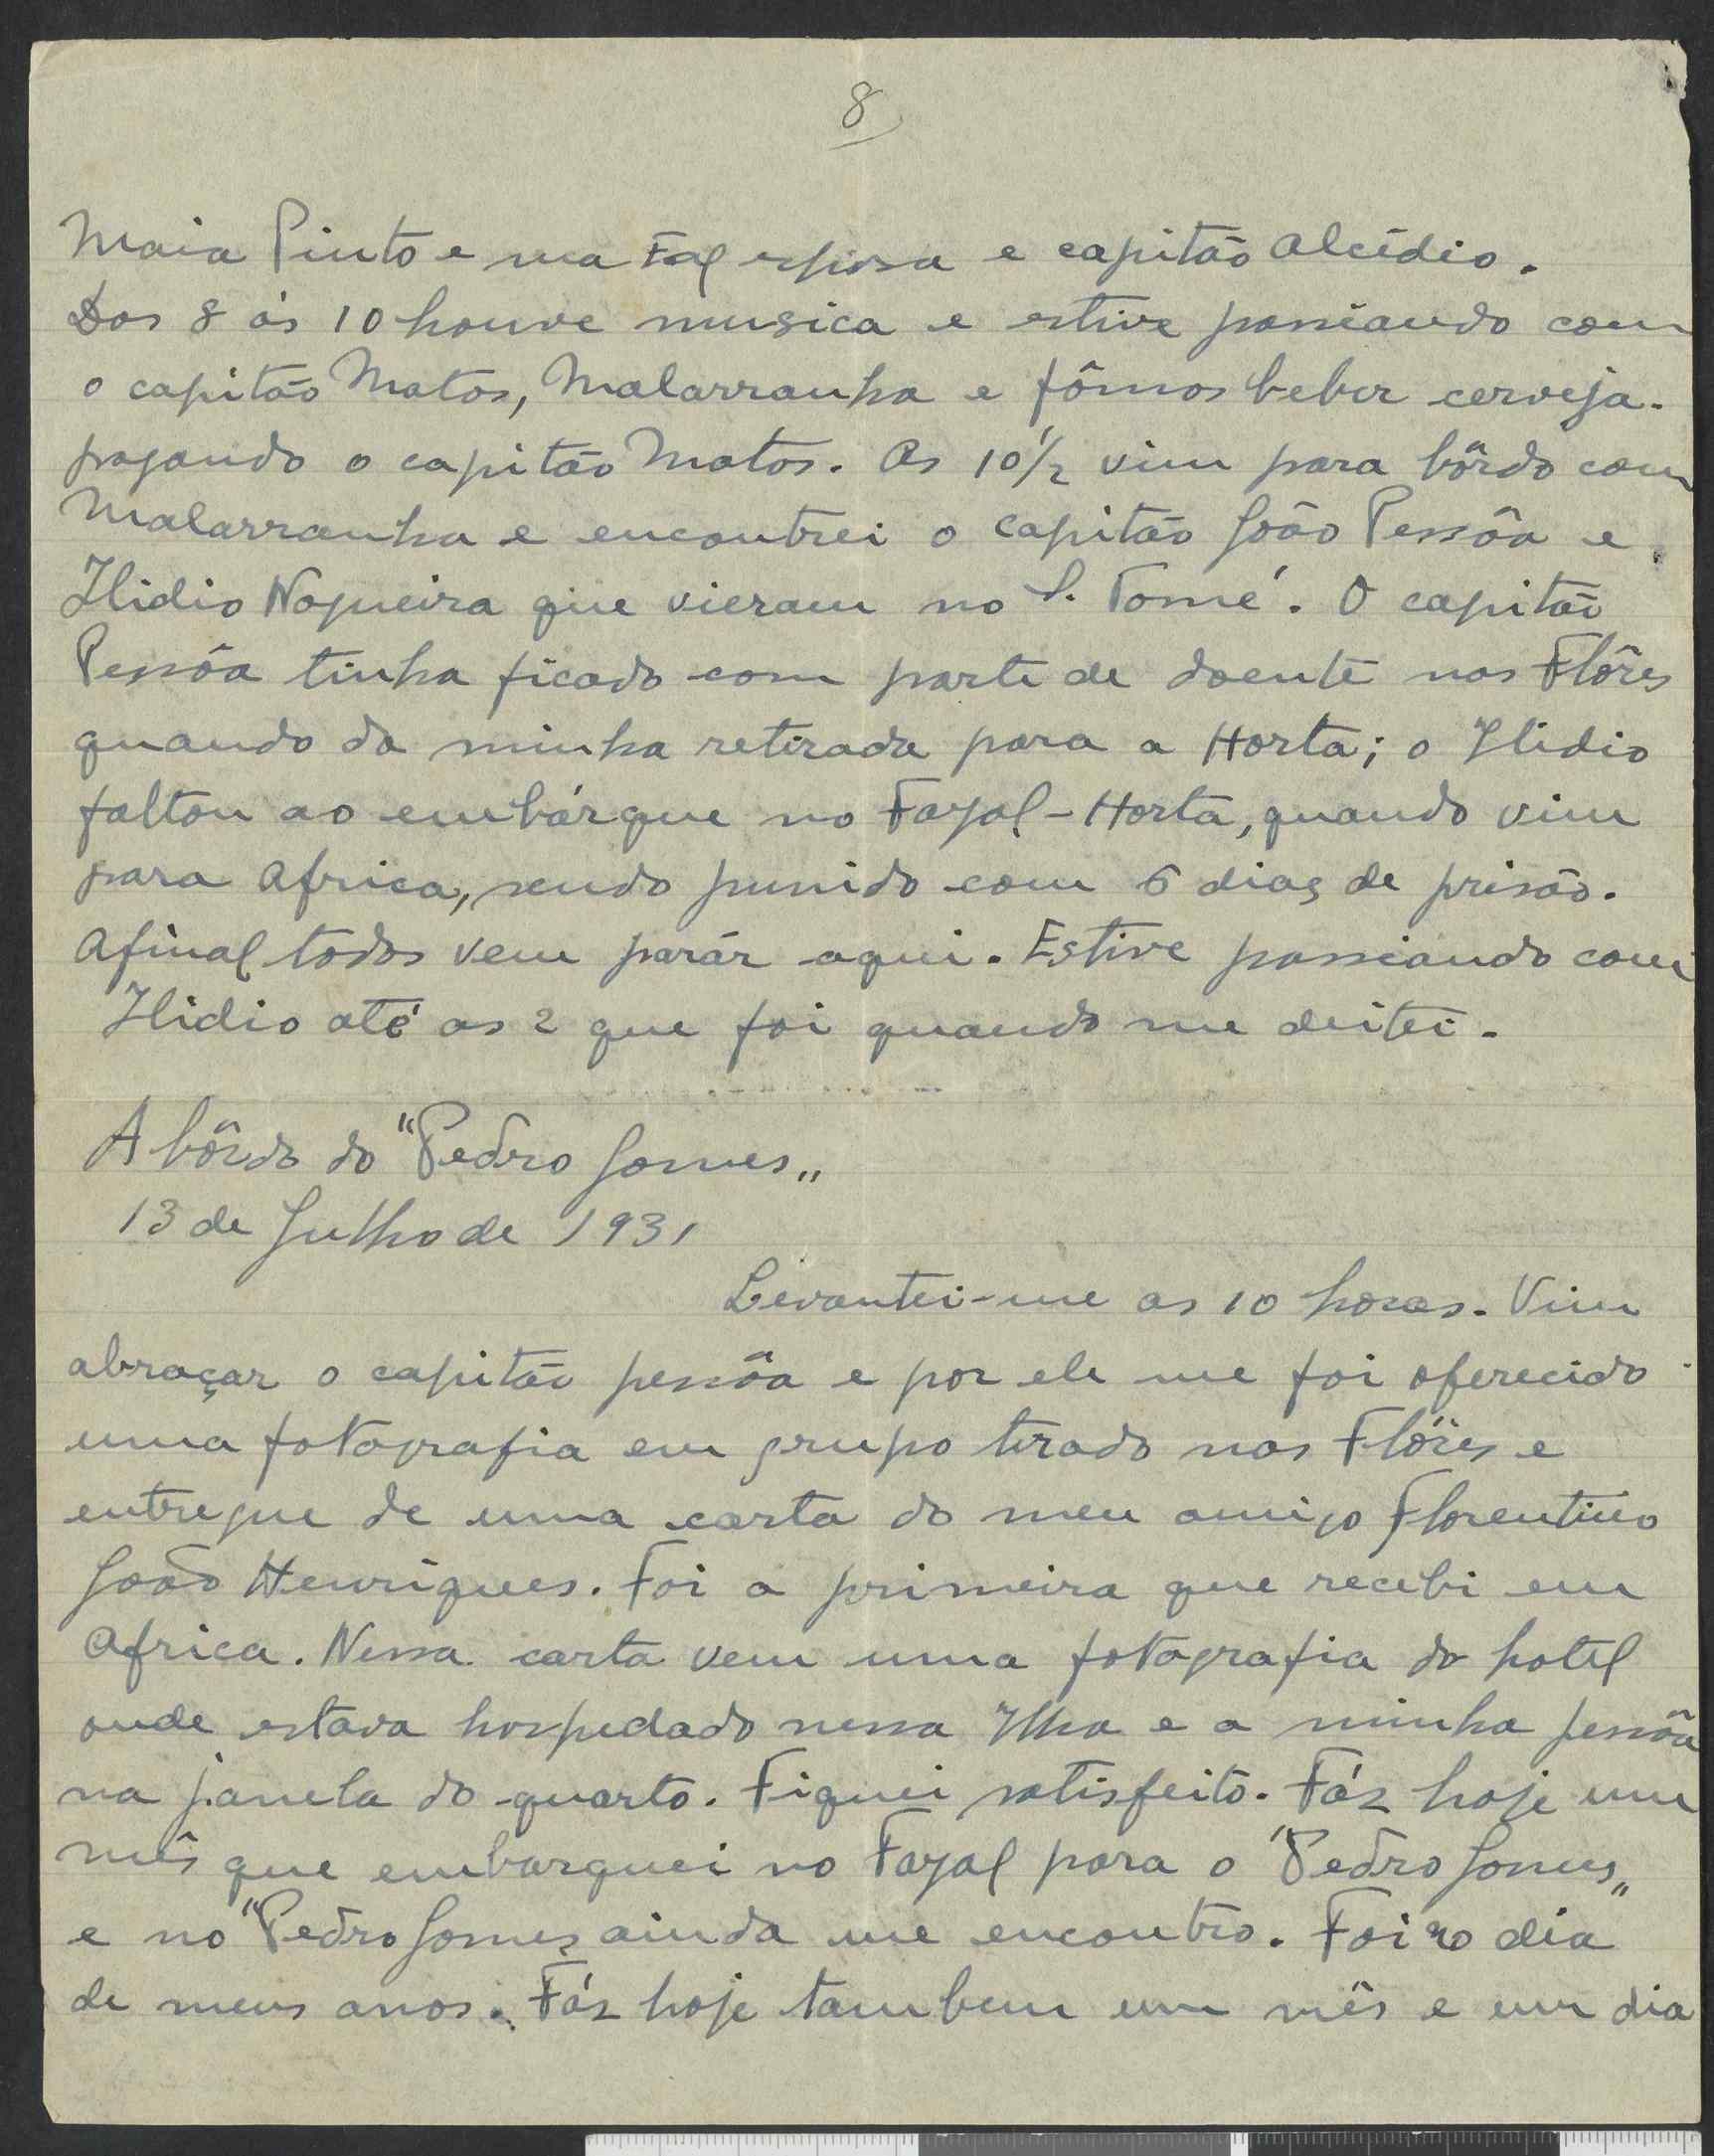 8
Maia Pinto e sua Exª esposa e capitão Alcídio.
Das 8 ás 10 houve musica e estive passiando com
o capitão Matos, Malarranha e fômos beber cerveja.
pagando o capitão Matos. As 10 1/2 vim para bôrdo com
Malarranha e encontrei o capitão João Pessôa e
Ilidio Nogueira que vieram no S. Tomé. O capitão
Pessôa tinha ficado com parte de doente nas Flôres
quando da minha retirada para a Horta; o Ilidio
faltou ao embárque no Fayal-Horta, quando vim
para Africa, sendo punido com 5 dias de prisão.
Afinal todos vem parár aqui. Estive passiando com
Ilidio até as 2 que foi quando me deitei.
A bôrdo do "Pedro Gomes„
13 de Julho de 1931
Levantei-me as 10 horas. Vim
abraçar o capitão pessôa e por ele me foi oferecido
uma fotografia em grupo tirado nas Flôres e
entregue de uma carta do meu amigo Florentino
João Henriques. Foi a primeira que recebi em
Africa. Nessa carta vem uma fotografia do hotel
onde estava hospedado nessa Ilha e a minha pessôa
na janela do quarto. Fiquei satisfeito. Fáz hoje um
mês que embarquei no Fayal para o "Pedro Gomes„
e no "Pedro Gomes ainda me encontro. Foi no dia
de meus anos. Fáz hoje tambem um mês e um dia